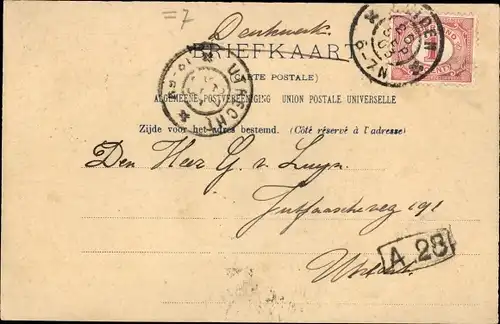 =7
Drukwerk.
BRIEFKAART
(CARTE POSTALE)
ALGEMEENE POSTVEREENIGING UNION POSTALE UNIVERSELLE
Zijde voor het adres bestemd. (Côté réservé à l'adresse)
UTRECHT
LEIDEN
6-7N
Den Heer G. v. Luyn.
Jutfaascheweg 191
Utrecht.
A. 28